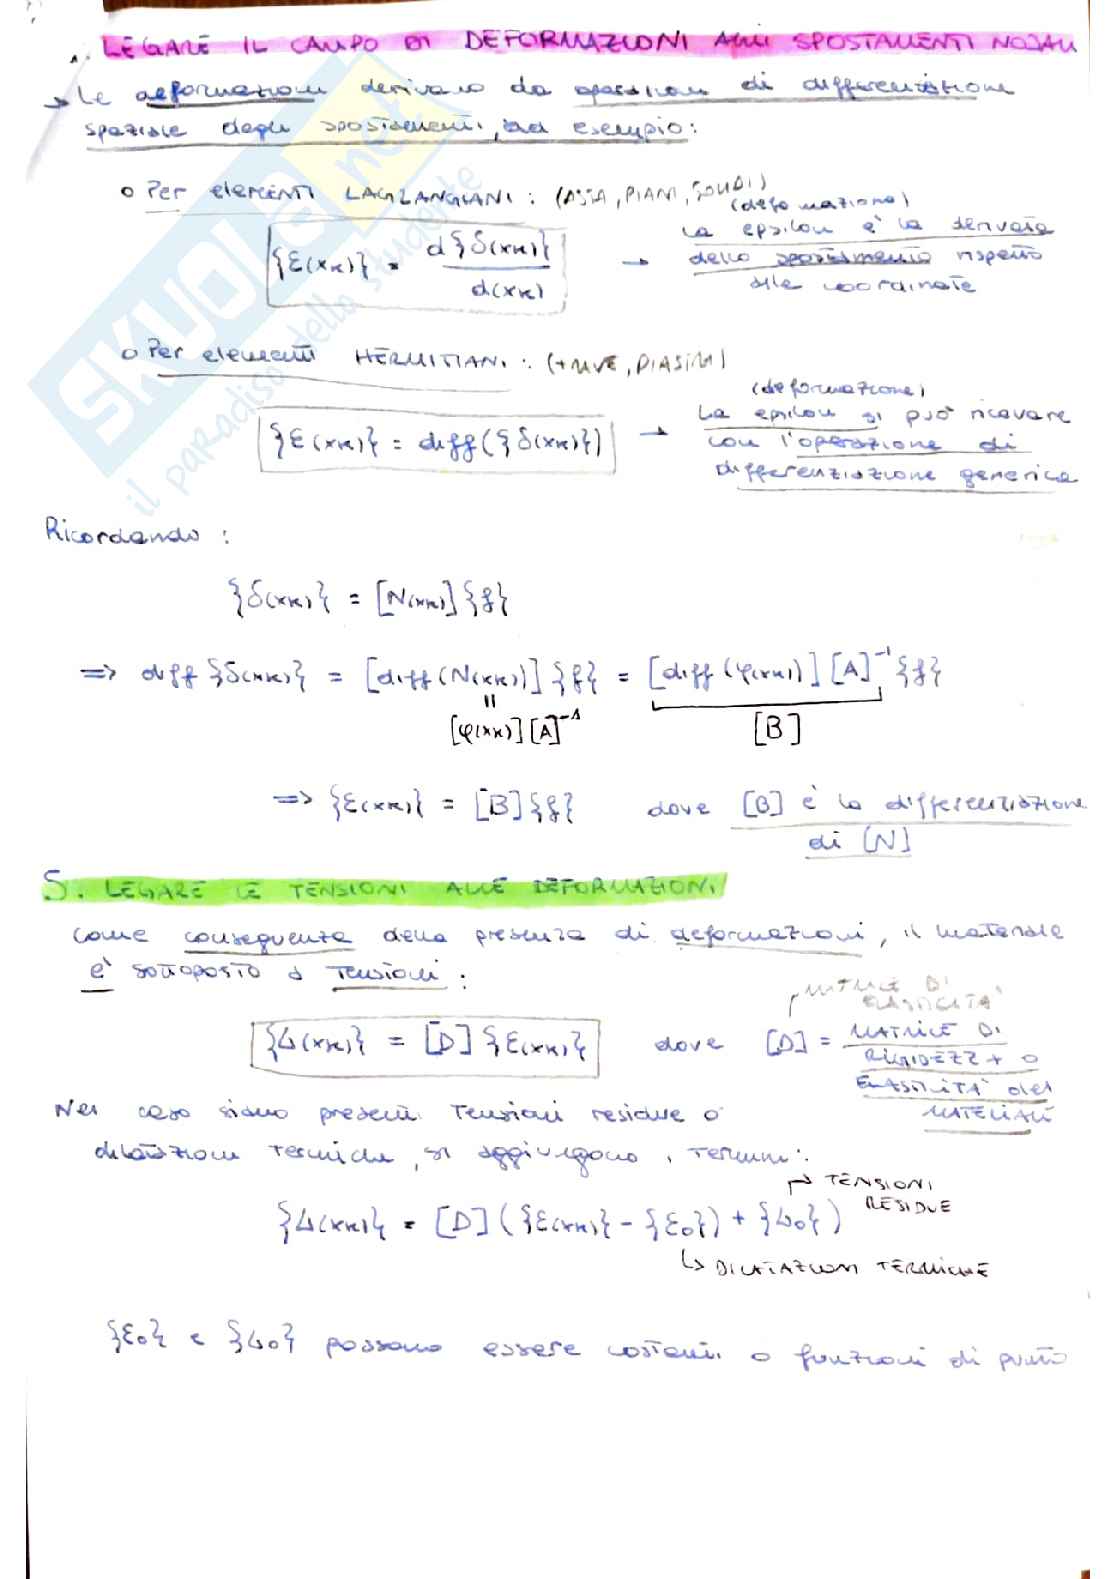 LEGARE IL CAMPO DI DEFORMAZIONI AGLI SPOSTAMENTI NODALI
→ Le deformazioni derivano da operazioni di differenziazione
spaziale degli spostamenti, ad esempio:
o Per elementi LAGRANGIANI: (ASTA, PIANI, SOLIDI)
(deformazione)
{ε(xk)} = d{δ(xk)} / d(xk) → La epsilon è la derivata
dello spostamento rispetto
alle coordinate
o Per elementi HERMITIANI: (TRAVE, PIASTRA)
(deformazione)
{ε(xk)} = diff({δ(xk)}) → La epsilon si può ricavare
con l'operazione di
differenziazione generica
Ricordando:
{δ(xk)} = [N(xk)]{f}
=> diff {δ(xk)} = [diff(N(xk))]{f} = [diff(φ(xk))][A]⁻¹{f}
=
[φ(xk)][A]⁻¹ [B]
=> {ε(xk)} = [B]{f} dove [B] è la differenziazione
di [N]
5. LEGARE LE TENSIONI ALLE DEFORMAZIONI
Come conseguenza della presenza di deformazioni, il materiale
è sottoposto a tensioni:
MATRICE DI
ELASTICITA'
{σ(xk)} = [D]{ε(xk)} dove [D] = MATRICE DI
RIGIDEZZA O
ELASTICITA' DEI
MATERIALI
Nel caso siano presenti tensioni residue o
dilatazioni termiche, si aggiungono i termini:
→ TENSIONI
RESIDUE
{σ(xk)} = [D]({ε(xk)} - {ε₀}) + {σ₀})
↳ DILATAZIONI TERMICHE
{ε₀} e {σ₀} possono essere costanti o funzioni di punto
SKUOLA.net
il paradiso dello studente